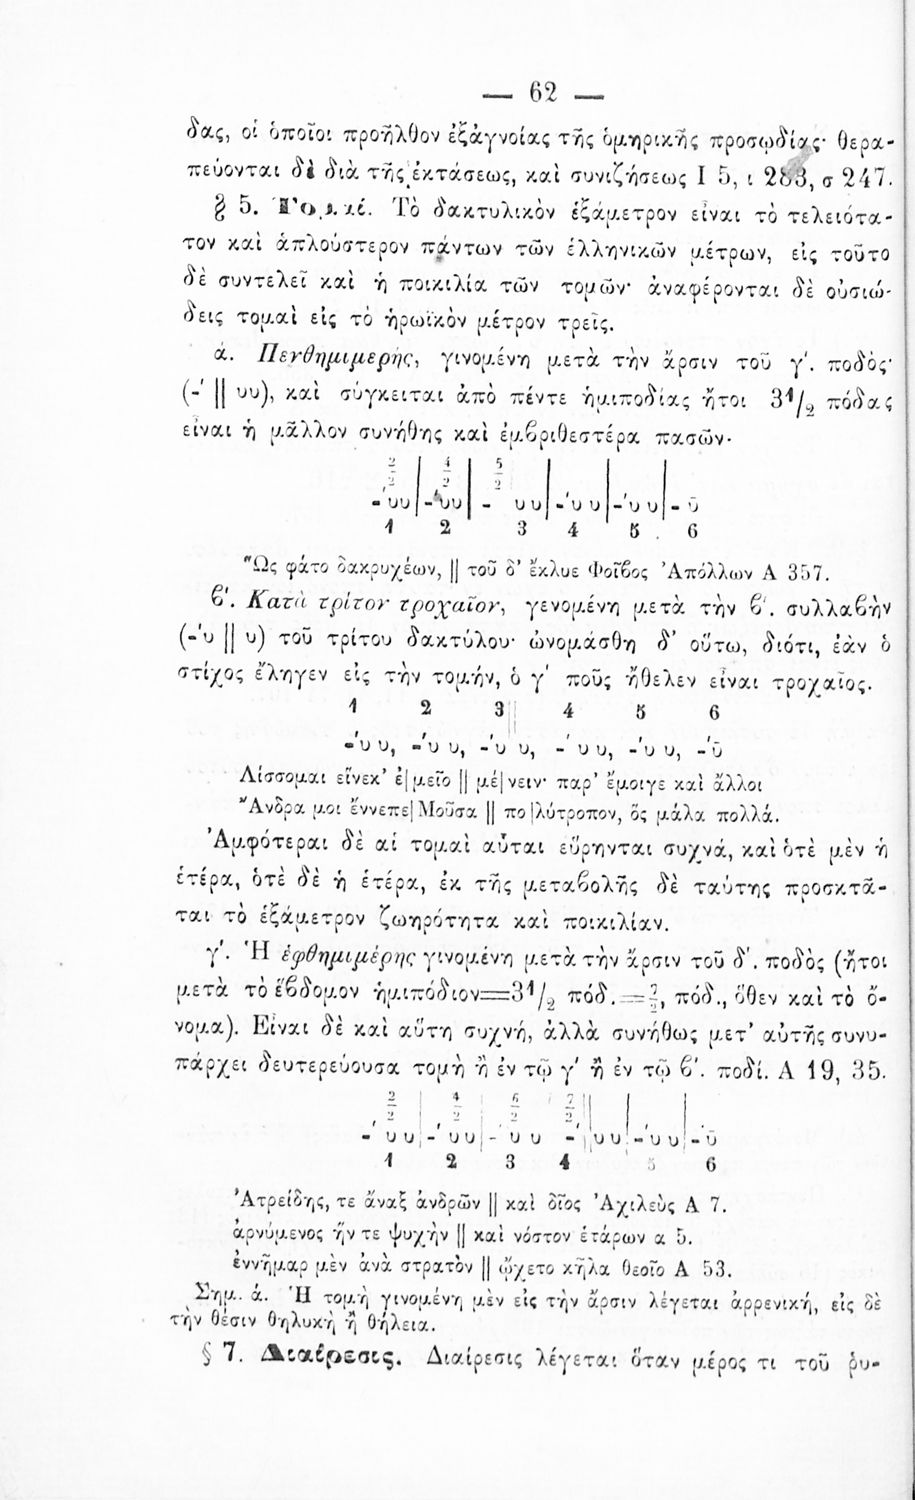 — 62 —
δας, οἱ ὁποῖοι προῆλθον ἐξἀγνοίας τῆς ὁμηρικῆς προσῳδίας· θερα-
πεύονται δὲ διὰ τῆς ἐκτάσεως, καὶ συνιζήσεως Ι 5, ι 283, σ 247.
§ 5. Τομαί. Τὸ δακτυλικὸν ἑξάμετρον εἶναι τὸ τελειότα-
τον καὶ ἁπλούστερον πάντων τῶν ἑλληνικῶν μέτρων, εἰς τοῦτο
δὲ συντελεῖ καὶ ἡ ποικιλία τῶν τομῶν· ἀναφέρονται δὲ οὐσιώ-
δεις τομαὶ εἰς τὸ ἡρωϊκὸν μέτρον τρεῖς.
ά. Πενθημιμερὴς, γινομένη μετὰ τὴν ἄρσιν τοῦ γ΄. ποδὸς·
(-΄ || υυ), καὶ σύγκειται ἀπὸ πέντε ἡμιποδίας ἤτοι 3 1/2 πόδας
εἶναι ἡ μᾶλλον συνήθης καὶ ἐμβριθεστέρα πασῶν·
2/2 4/2 5/2
-΄υυ|-΄υυ| - υυ|-΄υυ|-΄υυ|- ῡ
1 2 3 4 5 6
Ὣς φάτο δακρυχέων, || τοῦ δ' ἔκλυε Φοῖβος Ἀπόλλων Α 357.
β΄. Κατὰ τρίτον τροχαῖον, γενομένη μετὰ τὴν β΄. συλλαβὴν
(-΄υ || υ) τοῦ τρίτου δακτύλου· ὠνομάσθη δ' οὕτω, διότι, ἐὰν ὁ
στίχος ἔληγεν εἰς τὴν τομήν, ὁ γ΄ ποῦς ἤθελεν εἶναι τροχαῖος.
1 2 3 4 5 6
-΄υυ, -΄υυ, -΄υ υ, -΄υυ, -΄υυ, -΄ῡ
Λίσσομαι εἵνεκ' ἐ|μεῖο || μέ|νειν· παρ' ἔμοιγε καὶ ἄλλοι
Ἄνδρα μοι ἔννεπε|Μοῦσα || πο|λύτροπον, ὅς μάλα πολλά.
Ἀμφότεραι δὲ αἱ τομαὶ αὗται εὕρηνται συχνά, καὶ ὁτὲ μὲν ἡ
ἑτέρα, ὁτὲ δὲ ἡ ἑτέρα, ἐκ τῆς μεταβολῆς δὲ ταύτης προσκτᾶ-
ται τὸ ἑξάμετρον ζωηρότητα καὶ ποικιλίαν.
γ΄. Ἡ ἑφθημιμέρης γινομένη μετὰ τὴν ἄρσιν τοῦ δ΄. ποδὸς (ἤτοι
μετὰ τὸ ἕβδομον ἡμιπόδιον=3 1/2 πόδ.=7/2, πόδ., ὅθεν καὶ τὸ ὄ-
νομα). Εἶναι δὲ καὶ αὕτη συχνή, ἀλλὰ συνήθως μετ' αὐτῆς συνυ-
πάρχει δευτερεύουσα τομὴ ἢ ἐν τῷ γ΄ ἢ ἐν τῷ β΄. ποδί. Α 19, 35.
2/2 4/2 6/2 7/2
-΄υυ|-΄υυ|-΄υυ -΄||υυ|-΄υυ|-΄ῡ
1 2 3 4 5 6
Ἀτρείδης, τε ἄναξ ἀνδρῶν || καὶ δῖος Ἀχιλεὺς Α 7.
ἀρνύμενος ἥν τε ψυχὴν || καὶ νόστον ἑτάρων α 5.
ἐννῆμαρ μὲν ἀνὰ στρατὸν || ᾤχετο κῆλα θεοῖο Α 53.
Σημ. ά. Ἡ τομὴ γινομένη μὲν εἰς τὴν ἄρσιν λέγεται ἀρρενική, εἰς δὲ
τὴν θέσιν θηλυκὴ ἢ θήλεια.
§ 7. Διαίρεσις. Διαίρεσις λέγεται ὅταν μέρος τι τοῦ ῥυ-